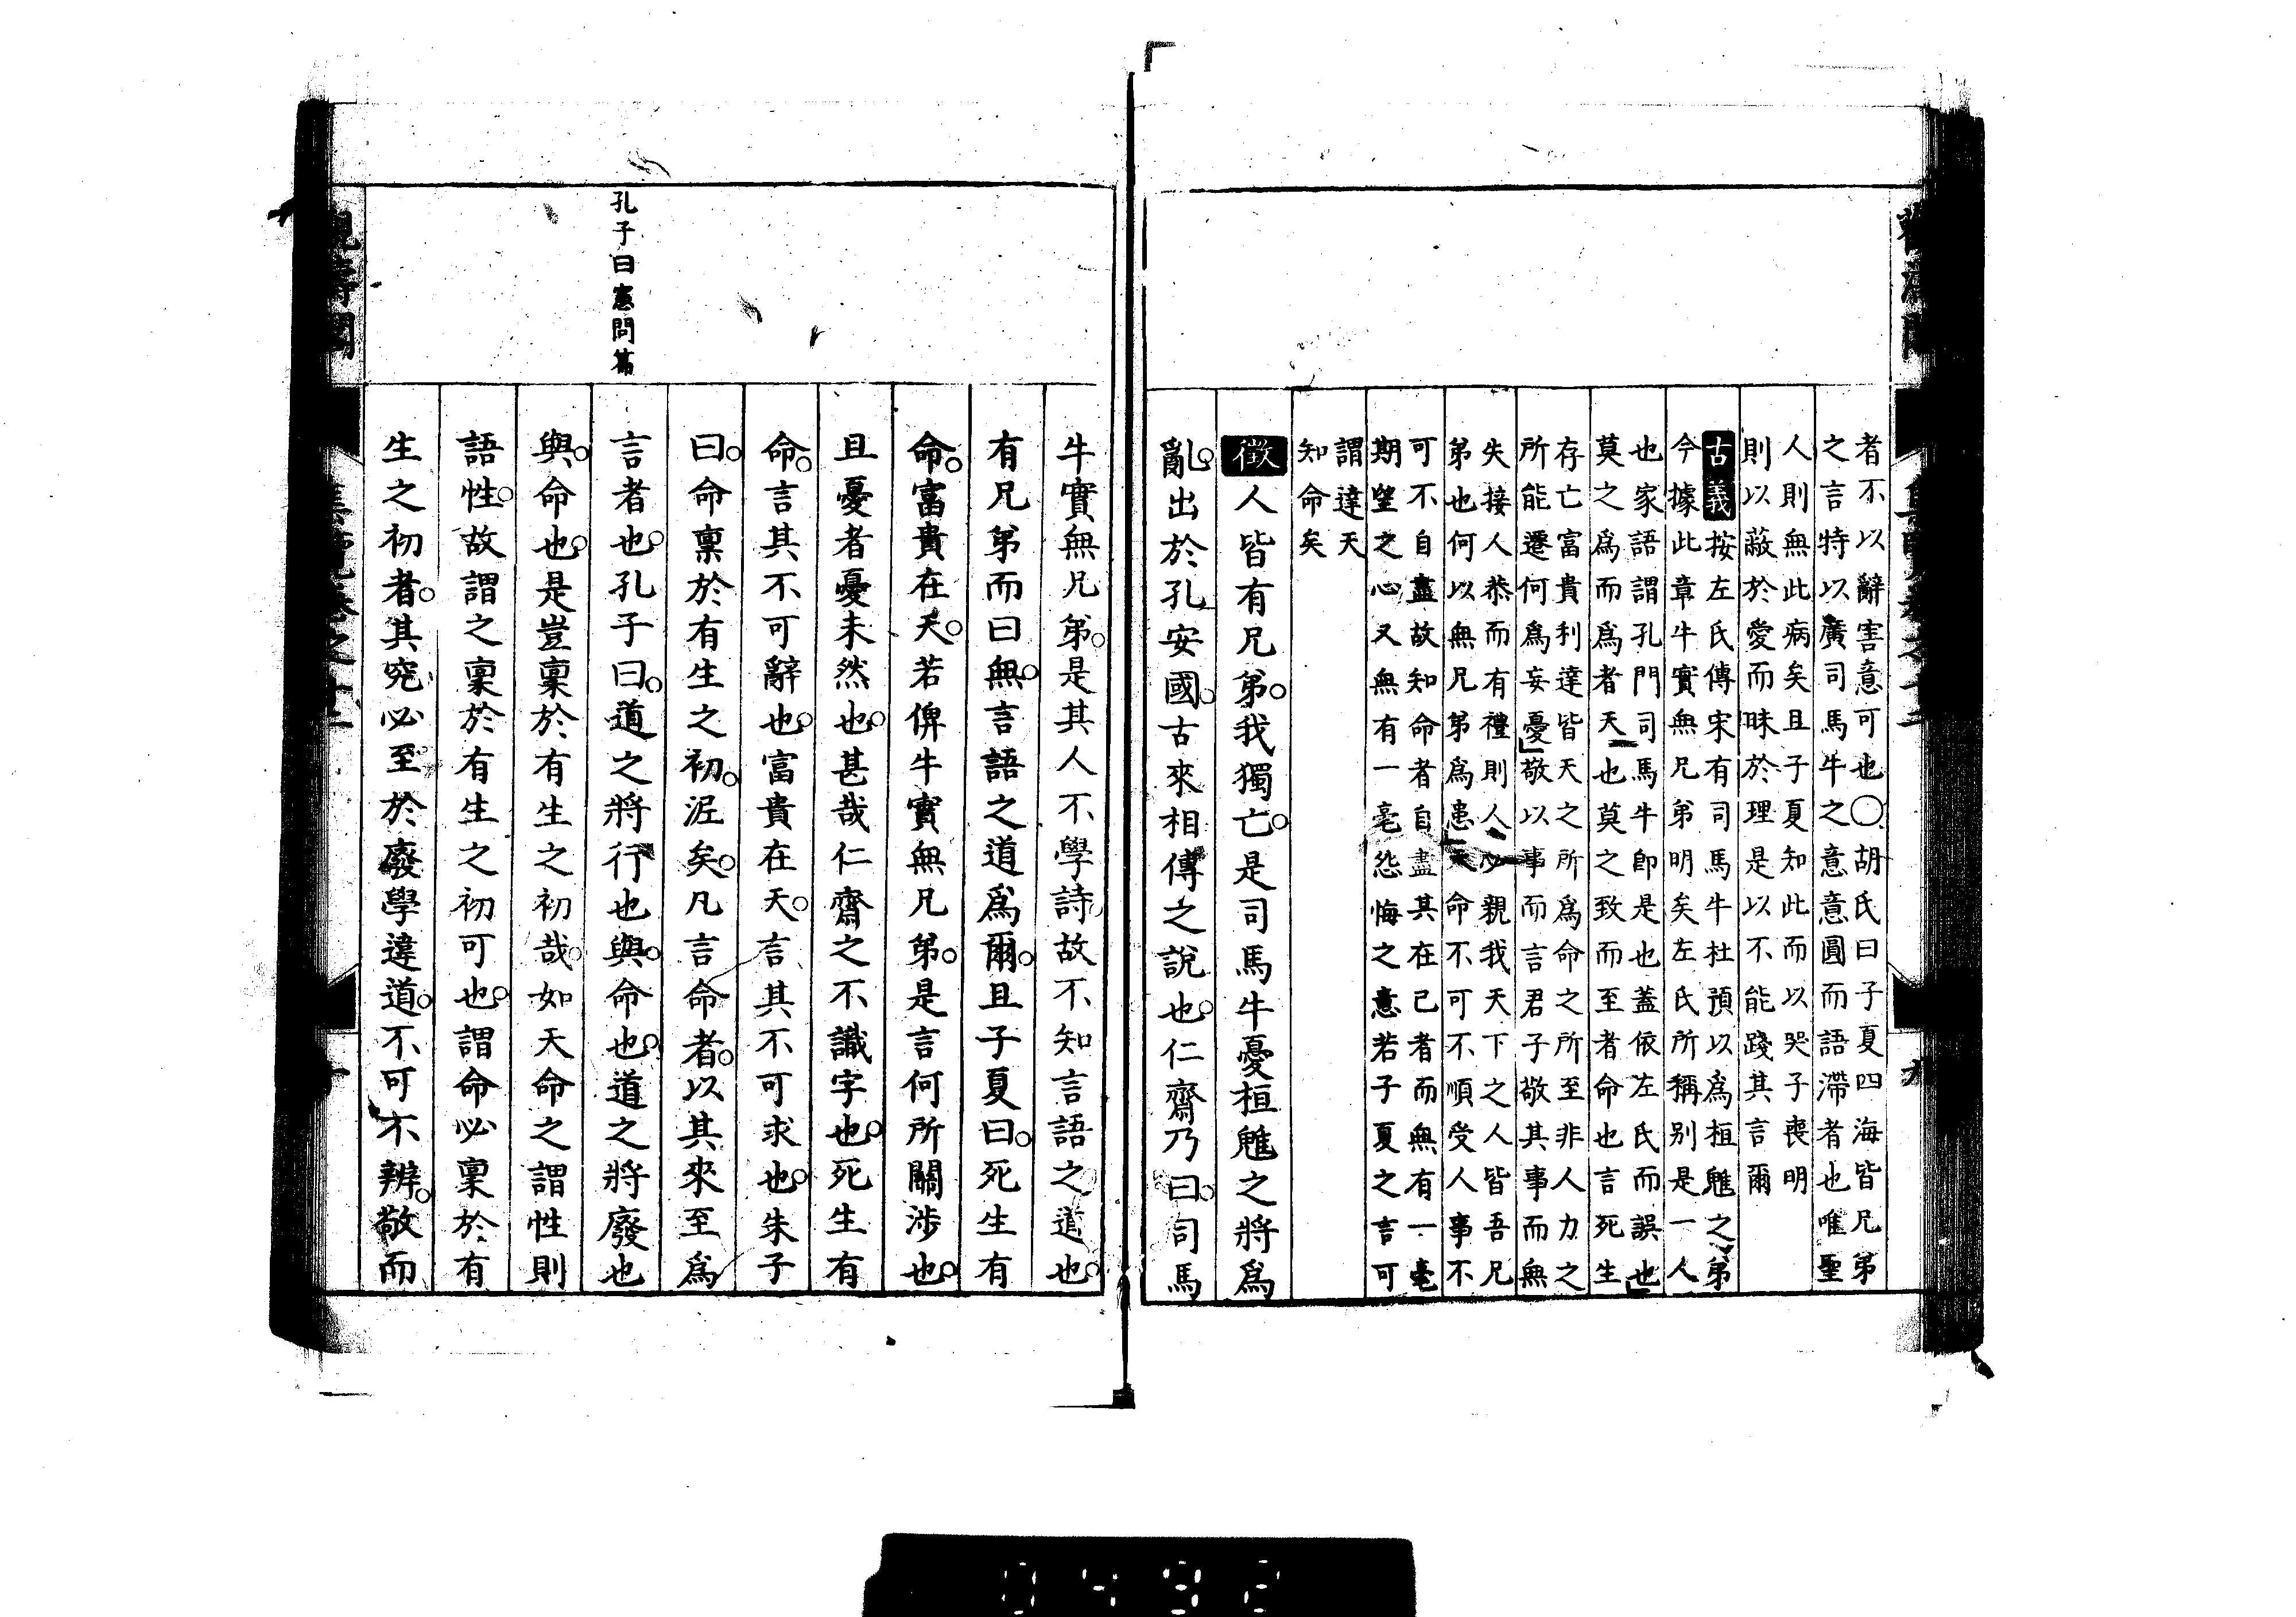 者不以辭害意可也〇胡氏曰子夏四海皆兄弟
之言特以廣司馬牛之意意圓而語滯者也唯聖
人則無此病矣且子夏知此而以哭子喪明
則以蔽於愛而昧於理是以不能踐其言爾
古義按左氏傳宋有司馬牛杜預以爲桓魋之弟
今據此章牛實無兄弟明矣左氏所稱別是一人
也家語謂孔門司馬牛卽是也蓋依左氏而誤也
莫之爲而爲者天也莫之致而至者命也言死生
存亡富貴利達皆天之所爲命之所至非人力之
所能遷何爲妄憂敬以事而言君子敬其事而無
失接人恭而有禮則人必親我天下之人皆吾兄
弟也何以無兄弟爲患天命不可不順受人事不
可不自盡故知命者自盡其在己者而無有一毫
期望之心又無有一毫怨悔之意若子夏之言可
謂達天
知命矣
徵人皆有兄弟。我獨亡。是司馬牛憂桓魋之將爲
亂。出於孔安國。古來相傳之說也。仁齋乃曰。司馬
牛實無兄弟。是其人不學詩故不知言語之道也。
有兄弟而曰無。言語之道爲爾。且子夏曰。死生有
命。富貴在天。若俾牛實無兄弟。是言何所關涉也。
且憂者憂未然也。甚哉仁齋之不識字也。死生有
命。言其不可辭也。富貴在天。言其不可求也。朱子
曰。命稟於有生之初。泥矣。凡言命者。以其來至爲
孔子曰憲問篇
言者也。孔子曰。道之將行也與。命也。道之將廢也
與。命也。是豈稟於有生之初哉。如天命之謂性則
語性。故謂之稟於有生之初可也。謂命必稟於有
生之初者。其究必至於廢學違道。不可不辨。敬而